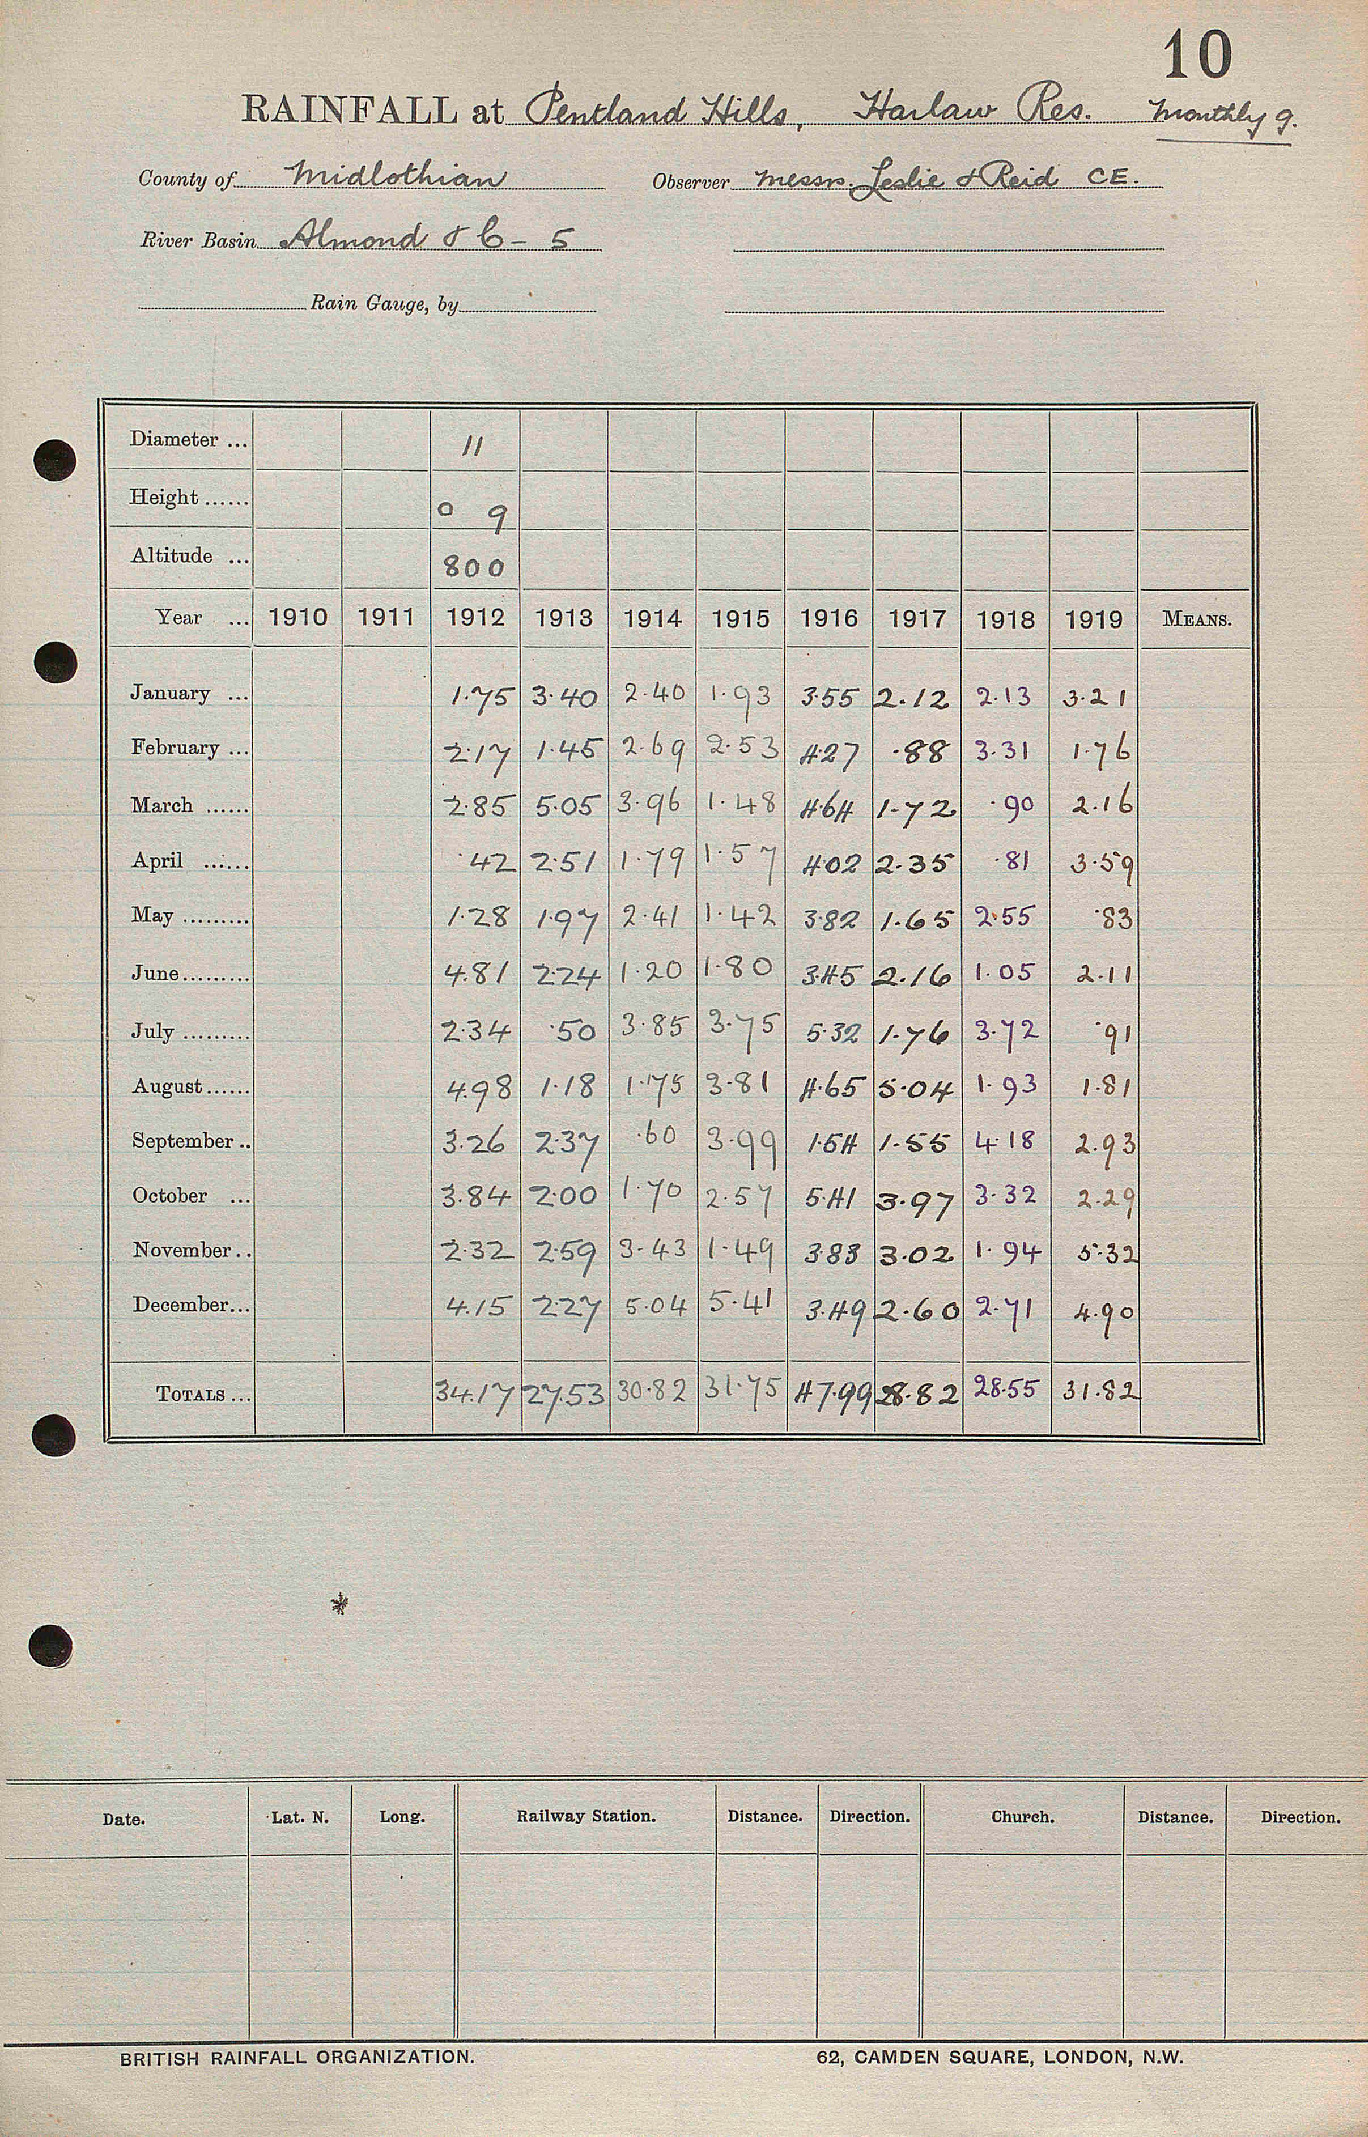 10
RAINFALL at Pentland Hills, Harlaw Res. Monthly 9.
County of Midlothian Observer Messrs. Leslie & Reid CE.
River Basin Almond & C - 5
Rain Gauge, by
Diameter ... 11
Height ...... 0 9
Altitude ... 800
Year ... 1910 1911 1912 1913 1914 1915 1916 1917 1918 1919 MEANS.
January ... 1·75 3·40 2·40 1·93 3·55 2·12 2·13 3·21
February ... 2·17 1·45 2·69 2·53 4·27 ·88 3·31 1·76
March ...... 2·85 5·05 3·96 1·48 4·64 1·72 ·90 2·16
April ...... ·42 2·51 1·79 1·57 4·02 2·35 ·81 3·59
May ......... 1·28 1·97 2·41 1·42 3·82 1·65 2·55 ·83
June......... 4·81 2·24 1·20 1·80 3·45 2·16 1·05 2·11
July ......... 2·34 ·50 3·85 3·75 5·32 1·76 3·72 ·91
August...... 4·98 1·18 1·75 3·81 4·65 5·04 1·93 1·81
September .. 3·26 2·37 ·60 3·99 1·54 1·55 4·18 2·93
October ... 3·84 2·00 1·70 2·57 5·41 3·97 3·32 2·29
November .. 2·32 2·59 3·43 1·49 3·83 3·02 1·94 5·32
December... 4·15 2·27 5·04 5·41 3·49 2·60 2·71 4·90
TOTALS ... 34·17 27·53 30·82 31·75 47·99 28·82 28·55 31·82
*
Date. Lat. N. Long. Railway Station. Distance. Direction. Church. Distance. Direction.
BRITISH RAINFALL ORGANIZATION. 62, CAMDEN SQUARE, LONDON, N.W.